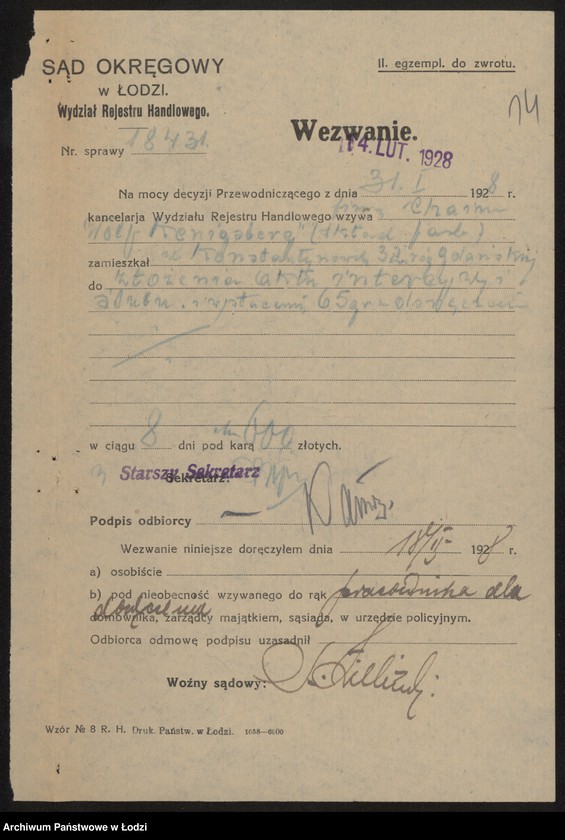 SĄD OKRĘGOWY
w ŁODZI.
Wydział Rejestru Handlowego.
II. egzempl. do zwrotu.
14
Wezwanie.
Nr. sprawy 18431.
14. LUT. 1928
Na mocy decyzji Przewodniczącego z dnia 31. I 1928 r.
kancelarja Wydziału Rejestru Handlowego wzywa firmę
"Wolf Kenigsberg" (skład farb)
zamieszkał ul Konstantynowska 32 róg Gdańskiej
do złożenia aktu intercyzy i
ślubu . i wpłacenia 65 gr
w ciągu 8 dni pod karą 600 złotych.
Starszy Sekretarz
Sekretarz:
Podpis odbiorcy
Wezwanie niniejsze doręczyłem dnia 18/II 1928 r.
a) osobiście
b) pod nieobecność wzywanego do rąk pracownika dla
doręczenia
domownika, zarządcy majątkiem, sąsiada, w urzędzie policyjnym.
Odbiorca odmowę podpisu uzasadnił
Woźny sądowy:
Wzór № 8 R. H. Druk. Państw. w Łodzi. 1058—6000
Archiwum Państwowe w Łodzi